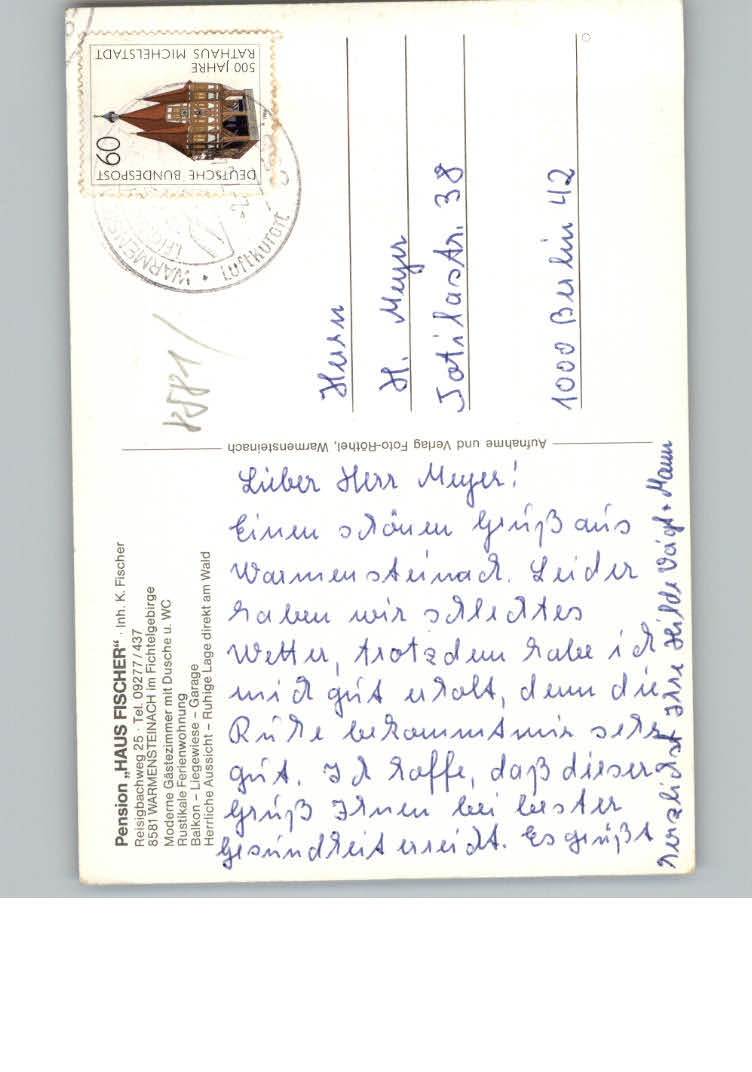 Pension „HAUS FISCHER“ · Inh. K. Fischer
Reisigbachweg 25 · Tel. 09277/437
8581 WARMENSTEINACH im Fichtelgebirge
Moderne Gästezimmer mit Dusche u. WC
Rustikale Ferienwohnung
Balkon – Liegewiese – Garage
Herrliche Aussicht – Ruhige Lage direkt am Wald
Lieber Herr Meyer!
Einen schönen Gruß aus
Warmensteinach. Leider
haben wir schlechtes
Wetter, trotzdem habe ich
mich gut erholt, denn die
Ruhe bekommt mir sehr
gut. Ich hoffe, daß dieser
Gruß Ihnen bei bester
Gesundheit erreicht. Es grüßt
herzlichst Ihre Hilde Voigt + Mann
Aufnahme und Verlag Foto-Röthel, Warmensteinach
8581
DEUTSCHE BUNDESPOST
60
500 JAHRE
RATHAUS MICHELSTADT
Luftkurort
Herrn
H. Meyer
Totilastr. 38
1000 Berlin 42